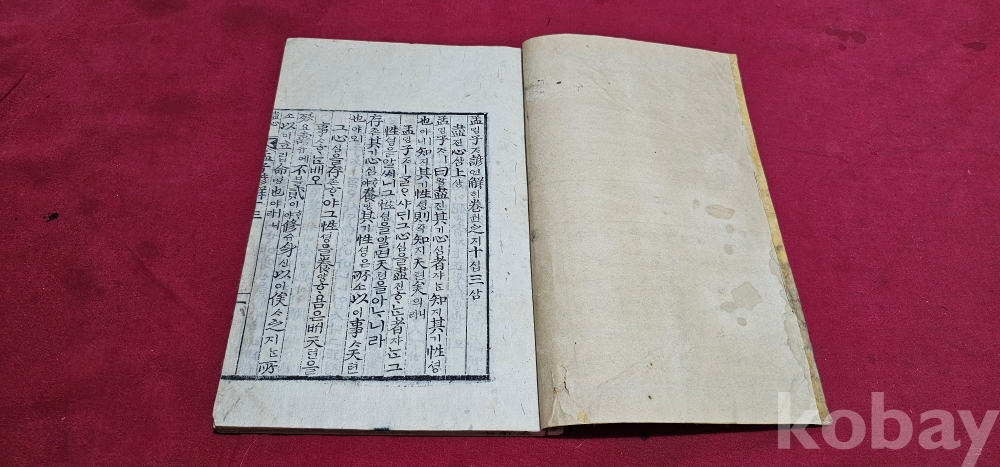 孟ᄆᆡᆼ子ᄌᆞ諺언解ᄒᆡ卷권之지十십三삼
盡진心심上샹
孟ᄆᆡᆼ子ᄌᆞㅣ曰왈盡진其기心심者쟈ᄂᆞᆫ知지其기性셩
也야ㅣ니知지其기性셩則즉知지天텬矣의니라
孟ᄆᆡᆼ子ᄌᆞㅣᄀᆞᆯᄋᆞ샤ᄃᆡ그心심을盡진ᄒᆞᄂᆞᆫ者쟈ᄂᆞᆫ그
性셩을알ᄯᅵ니그性셩을알면天텬을아ᄂᆞ니라
存존其기心심ᄒᆞ야養양其기性셩은所소以이事ᄉᆞ天텬
也야ㅣ오
그心심을存존ᄒᆞ야그性셩을養양홈은ᄡᅥ天텬을
事ᄉᆞᄒᆞᄂᆞᆫ배오
殀요壽슈에不블貳이ᄒᆞ야修슈身신以이俟ᄉᆞ之지ᄂᆞᆫ所
소以이立립命명也야ㅣ니라
盡心
孟子諺解十三
kobay